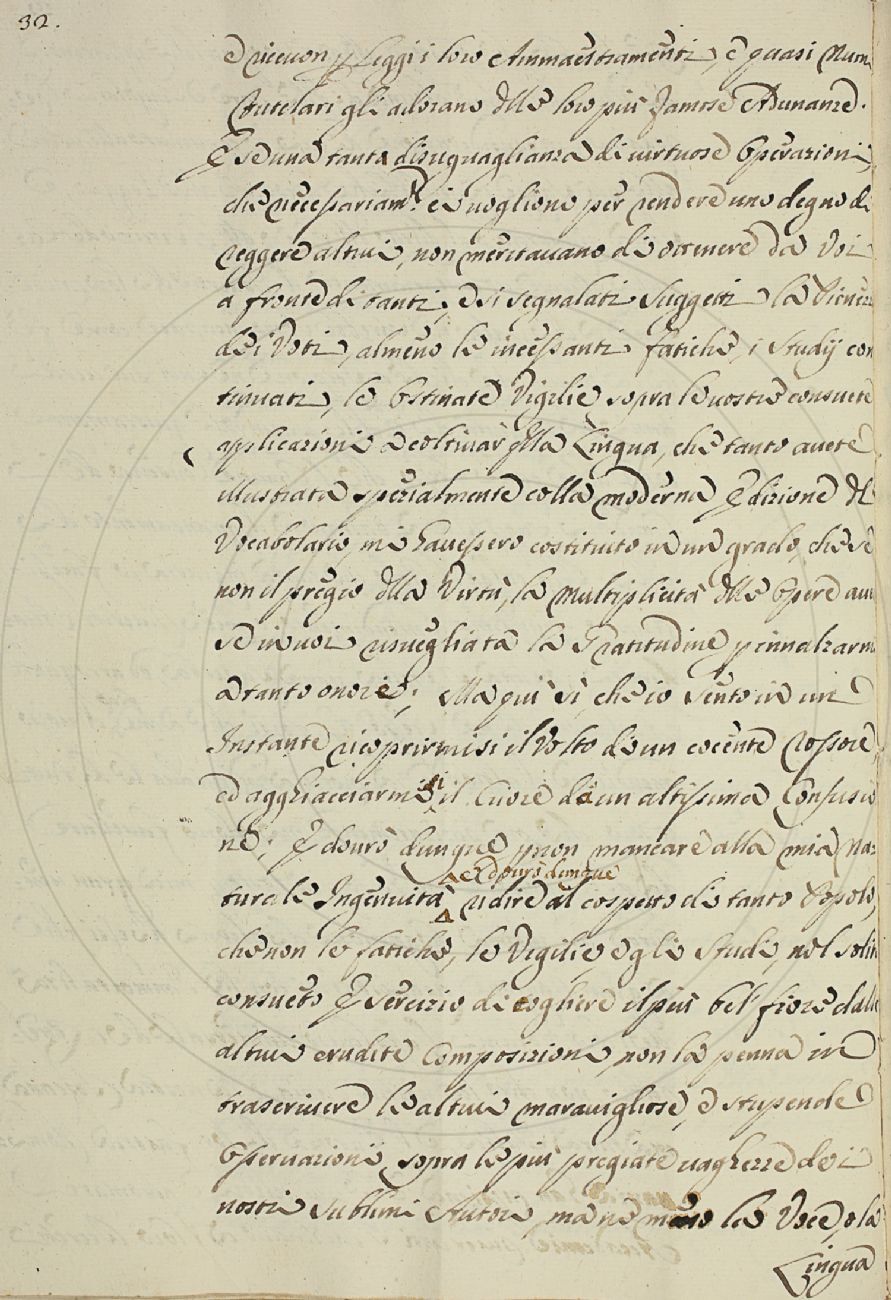 32.
e riceuon p Leggi i loro Ammaestramenti, e quasi Numi
tutelari gli adorano dlle loro più famose Adunanze.
E se una tanta disuguaglianza di uirtuose Operazioni,
che necessariamte. ci uogliono per rendere uno degno di
reggere altrui, non meritauano di ottenere da Voi
a fronte di tanti, e si segnalati Suggetti la Pienezza
dei Voti, almeno le incessanti fatiche, i Studij con
tinuati, le Ostinate Vigilie sopra le uostre consuete
applicazioni a coltiuar qlla Lingua, che tanto auete
illustrata spezialmente colla moderna Edizione dl
Vocabolario, mi hauessero costituito in un grado, che se
non il pregio dlla Virtù, la Multiplicità dlle Opere aues
se in uoi risuegliata la Gratitudine p innalzarmi
a tanto onore; Ma qui si, che io sento in un
Instante ricoprirmisi il Volto di un cocente rossore,
ed agghiacciarmisi il Cuore di un altissima Confusio
ne; E dourò dunque p non mancare alla mia Na-
turale Ingenuità ed dourò dunque ridire al cospetto di tanto Popolo,
che non le fatiche, le Vigilie, e gli Studi, nel solito
consueto Esercizio di cogliere il più bel fiore dalle
altrui erudite Composizioni, non la penna in
trascriuere le altrui marauigliose, e stupende
Osseruazioni sopra le più pregiate uaghezze dei
nostri Sublimi Autori, ma ne meno la Voce, o la
Lingua